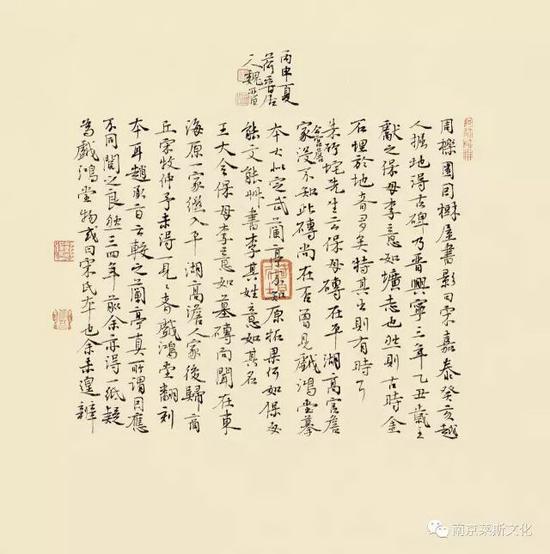 丙申夏
人魏
周櫟園因樹屋書影曰宋嘉泰癸亥越
人掘地得古碑乃晉興寧三年乙丑歲王
獻之保母李意如壙志也然則古時金
石埋於地者多矣特其出則有時耳
朱竹垞先生云保母磚在平湖高宮詹
家沒不知此磚尚在否曾見戲鴻堂摹
宮詹
本大似定武蘭亭不知原拓果何如保母
能文能艸書李其姓意如其名
王大令保母李意如墓磚向聞在東
海原一家繼入平湖高澹人家後歸商
丘宋牧仲予未得一見之者戲鴻堂翻刻
本耳趙承旨云較之蘭亭真所謂固應
不同聞之良然三四年前余亦得一紙疑
為戲鴻堂物或曰宋氏本也余未遑辨
南京莱斯文化